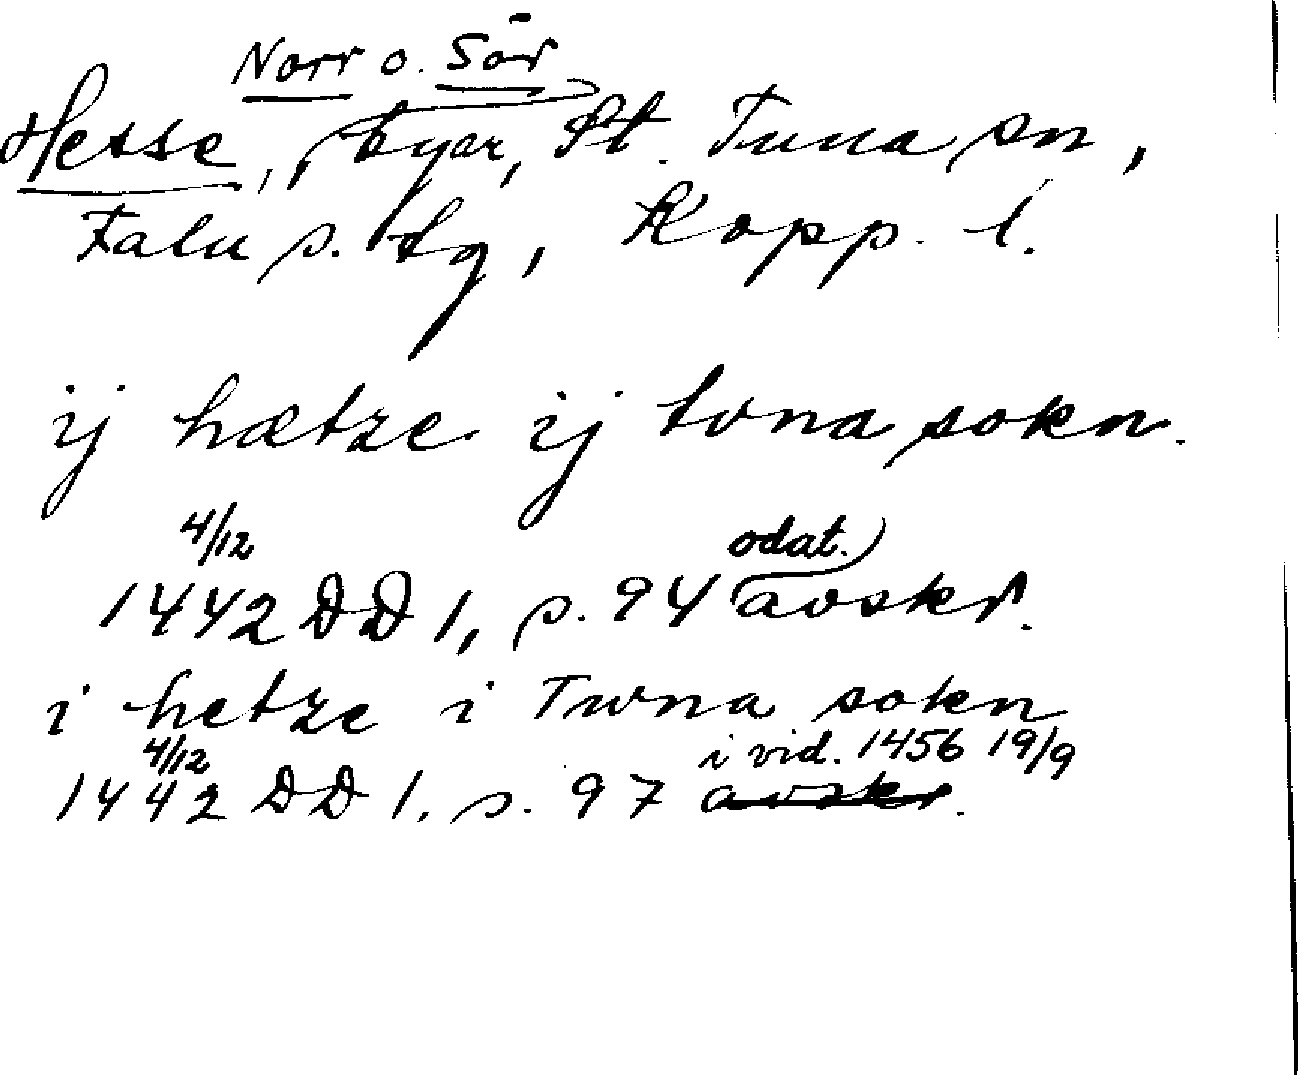 Norr o. Sör
Hesse, byar, St. Tuna sn,
Falu s. tg, Kopp. l.
ij hætze ij tvna sokn.
4/12 odat.
1442 DD 1, s. 94 avskr.
i hetze i Twna sokn
4/12 i vid. 1456 19/9
1442 DD 1, s. 97 avskr.